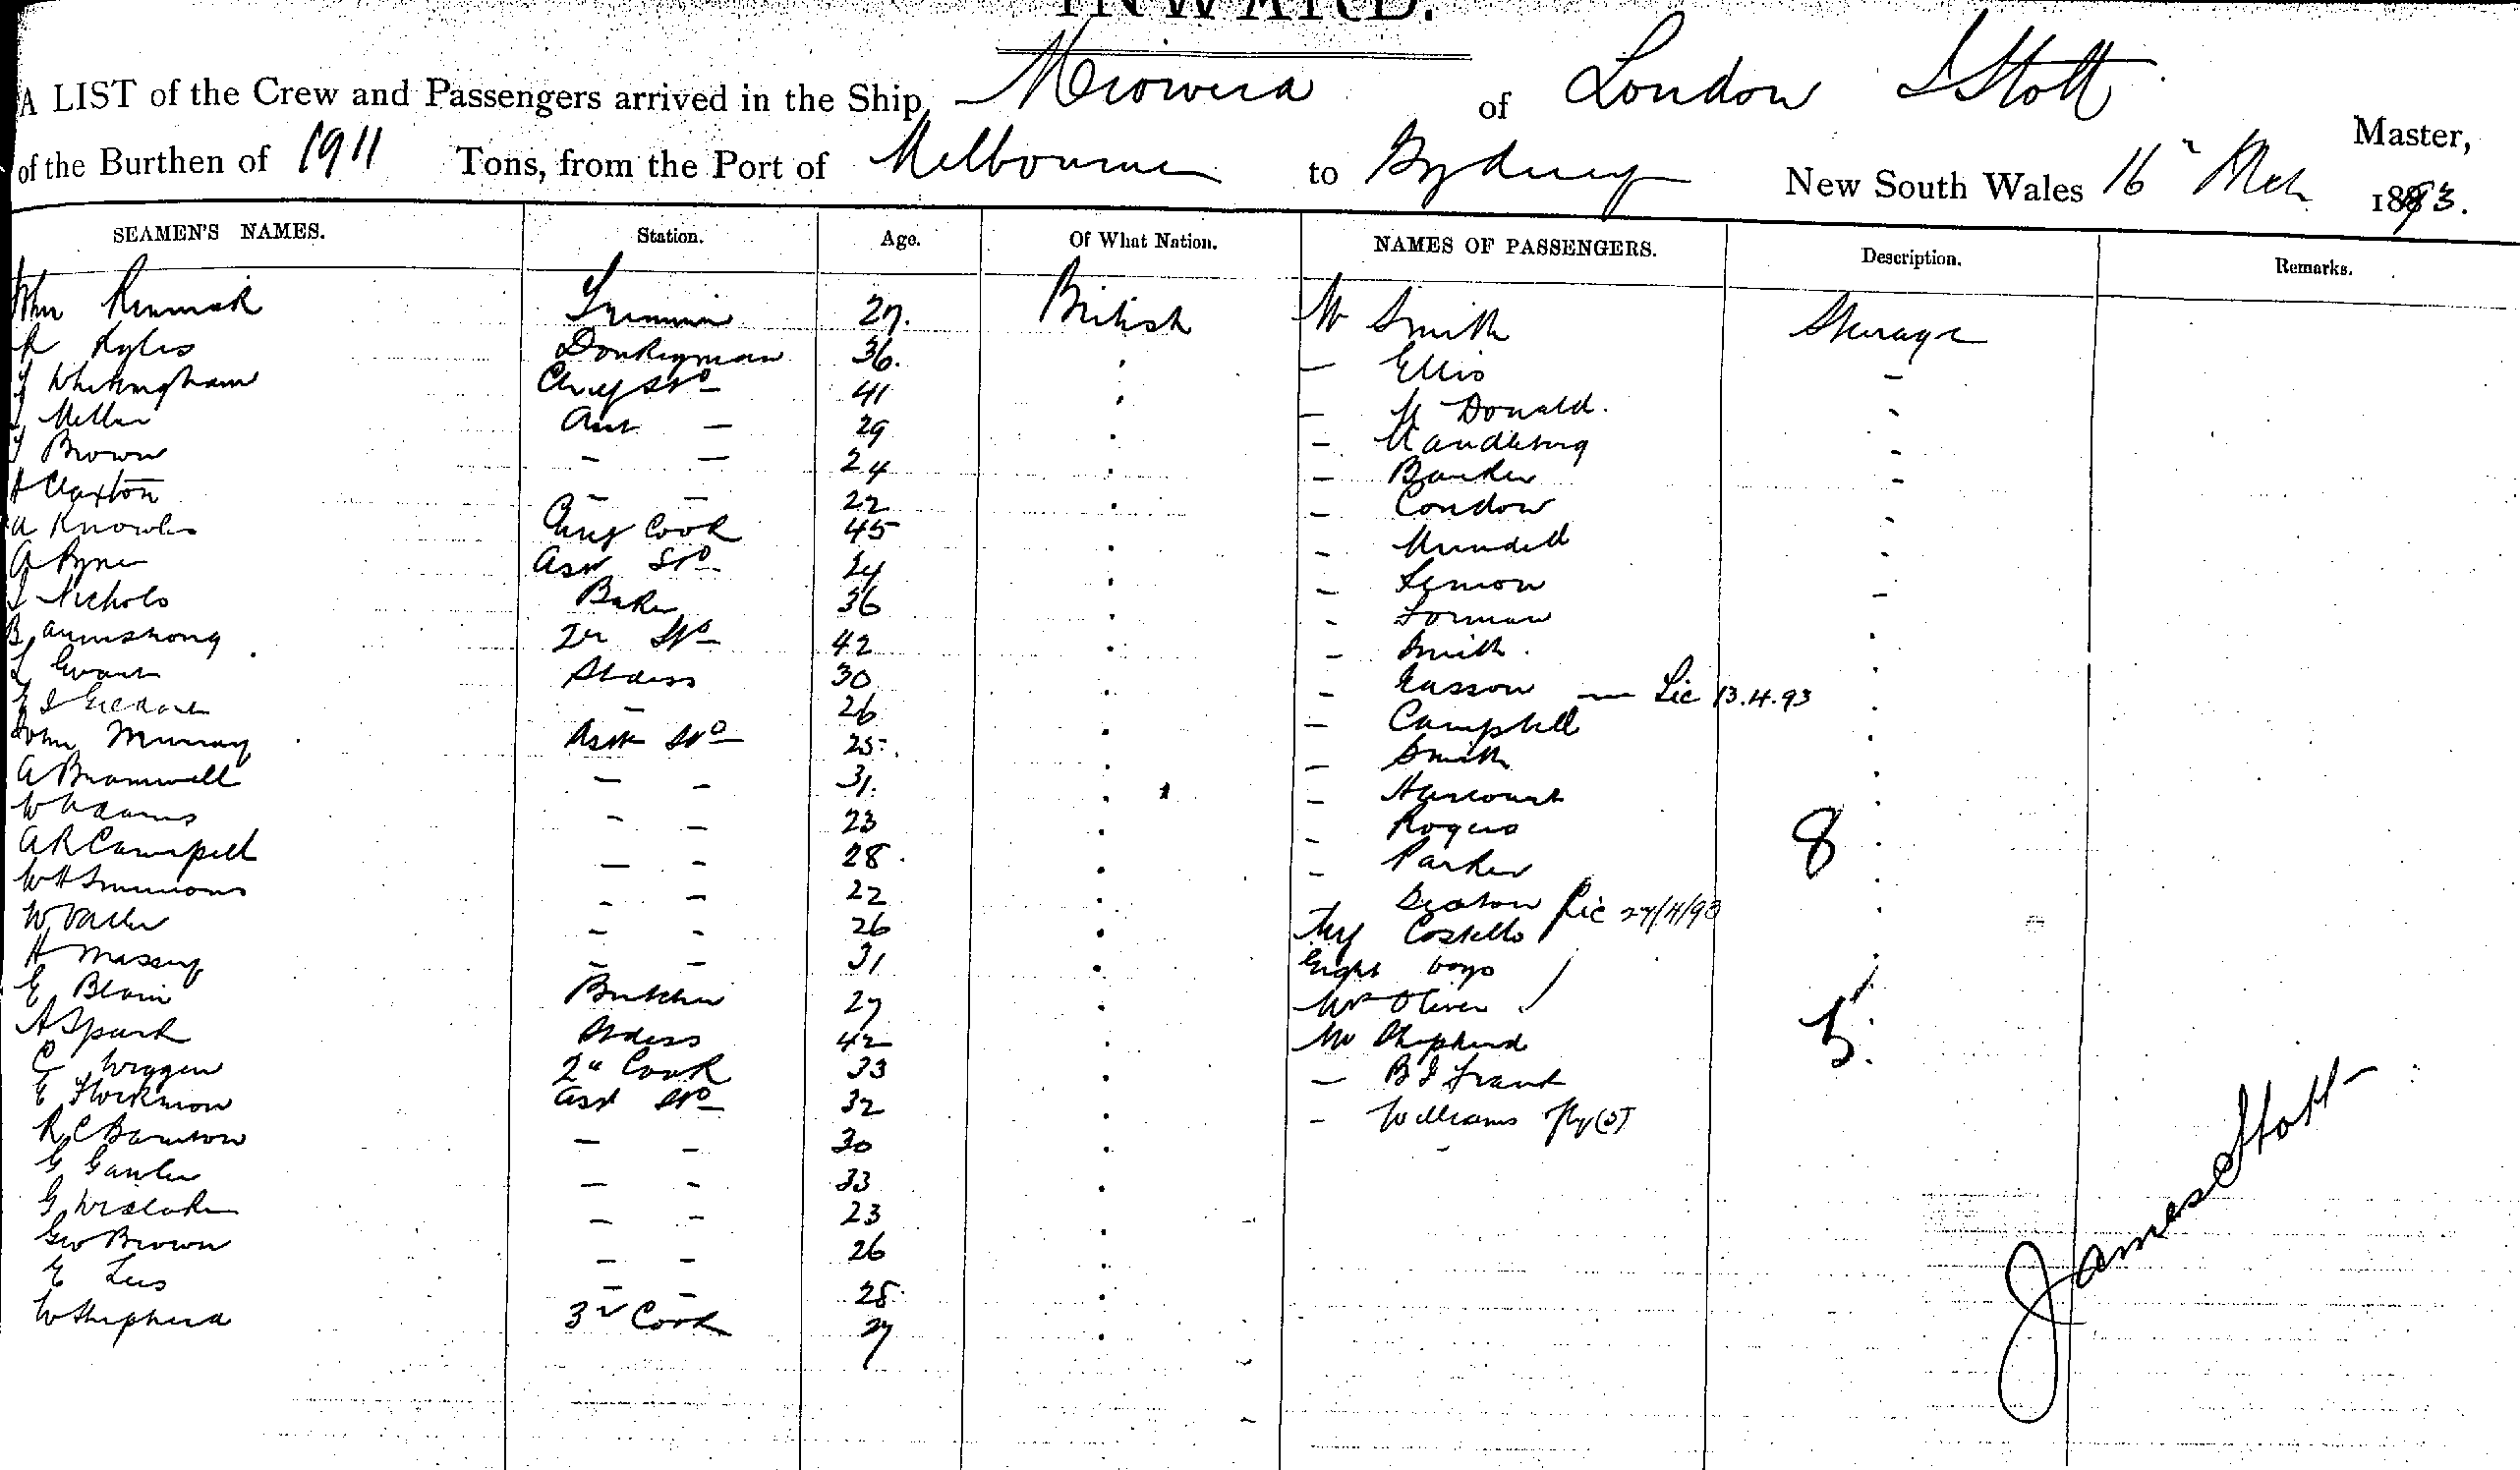 INWARD.
A LIST of the Crew and Passengers arrived in the Ship, Miowera of London J Stott Master,
of the Burthen of 1911 Tons, from the Port of Melbourne to Sydney New South Wales 16" Mch 1893.
SEAMEN'S NAMES. Station. Age. Of What Nation. NAMES OF PASSENGERS. Description. Remarks.
John 27. British Mr Smith Steerage
R Kyles Donkeyman 36. — Ellis –
Whittingham Chief Std 41 — McDonald.
Miller Asst — 29 –
Brown – — 24 — –
Claxton – – 22 — Condon
A Knowles Chief Cook 45 – Mundell
A Pyne Asst Std 24 – Lemon –
Nichols Baker 36 - Forman
B Armstrong 2nd Std 42 – Smith.
Evans Stdess 30 – Easson — Lic 13.4.93
– 26 — Campbell
John Murray Asst Std 25 — Smith
A Bramwell – – 31. – Harcourt
W Adams – – 23 – Rogers 8
A R Campbell — – 28. – Parker
W H Simmons – – 22 Seaton Lic 27/4/93
W – – 26 Costello
H Massey – – 31 Eight boys /
E Blain Butcher 27 Mrs Oliver /
A Spark Stdess 42 Mr Shepherd 5
C 2nd Cook 33 — B J
E Asst Std 32 – Williams
R C – – 30
G — – 33
G – – 23
Geo Brown – – 26
E Lees – – 25
W Shepherd 3rd Cook 27
James Stott